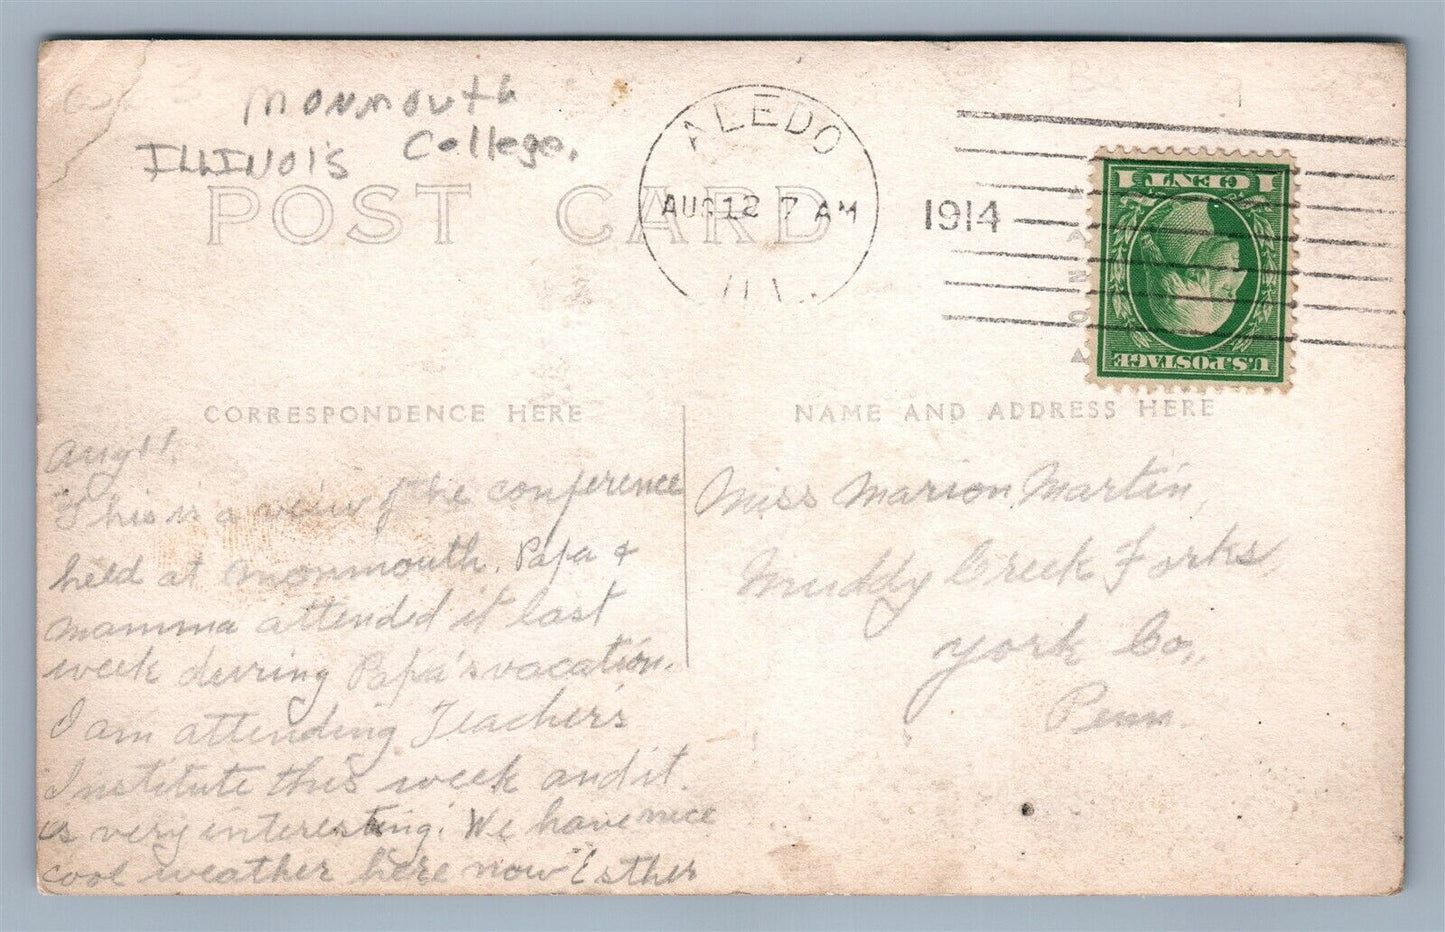 Monmouth
ILLINOIS College.
POST CARD
ALEDO
AUG 12 7 AM
1914
ILL.
1 CENT 1
U.S. POSTAGE
AZO
CORRESPONDENCE HERE
NAME AND ADDRESS HERE
Aug 11.
This is a view of the conference
held at Monmouth. Papa &
mamma attended it last
week durring Papa's vacation.
I am attending Teacher's
Institute this week and it
is very interesting. We have nice
cool weather here now Esther
Miss Marion Martin,
Muddy Creek Forks,
York Co.,
Penn.